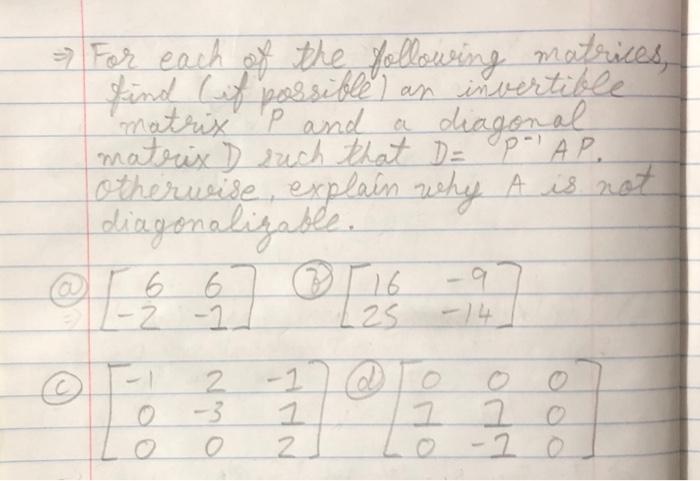 ⇒ For each of the following matrices,
find (if possible) an invertible
matrix P and a diagonal
matrix D such that D = P⁻¹ AP.
Otherwise, explain why A is not
diagonalizable.
(a) [ 6 6 ] (b) [ 16 -9 ]
[ -2 -1 ] [ 25 -14 ]
(c) [ -1 2 -1 ] (d) [ 0 0 0 ]
[ 0 -3 1 ] [ 1 1 0 ]
[ 0 0 2 ] [ 0 -1 0 ]